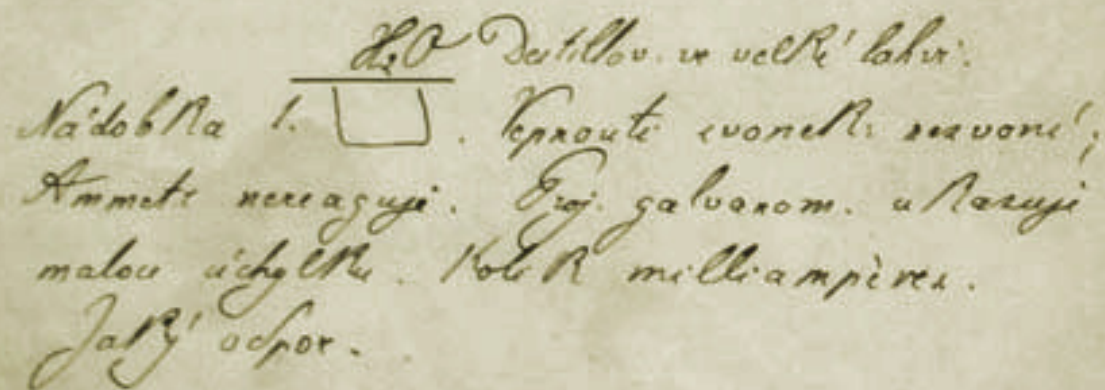 H₂O Destillov. ve velké lahvi.
Nádobka 1. . V proutě zvonek: nezvoní;
Ammetr nereaguje. Proj. galvanom. ukazuje
malou úchylku. Kolik milliampères.
Jaký odpor.